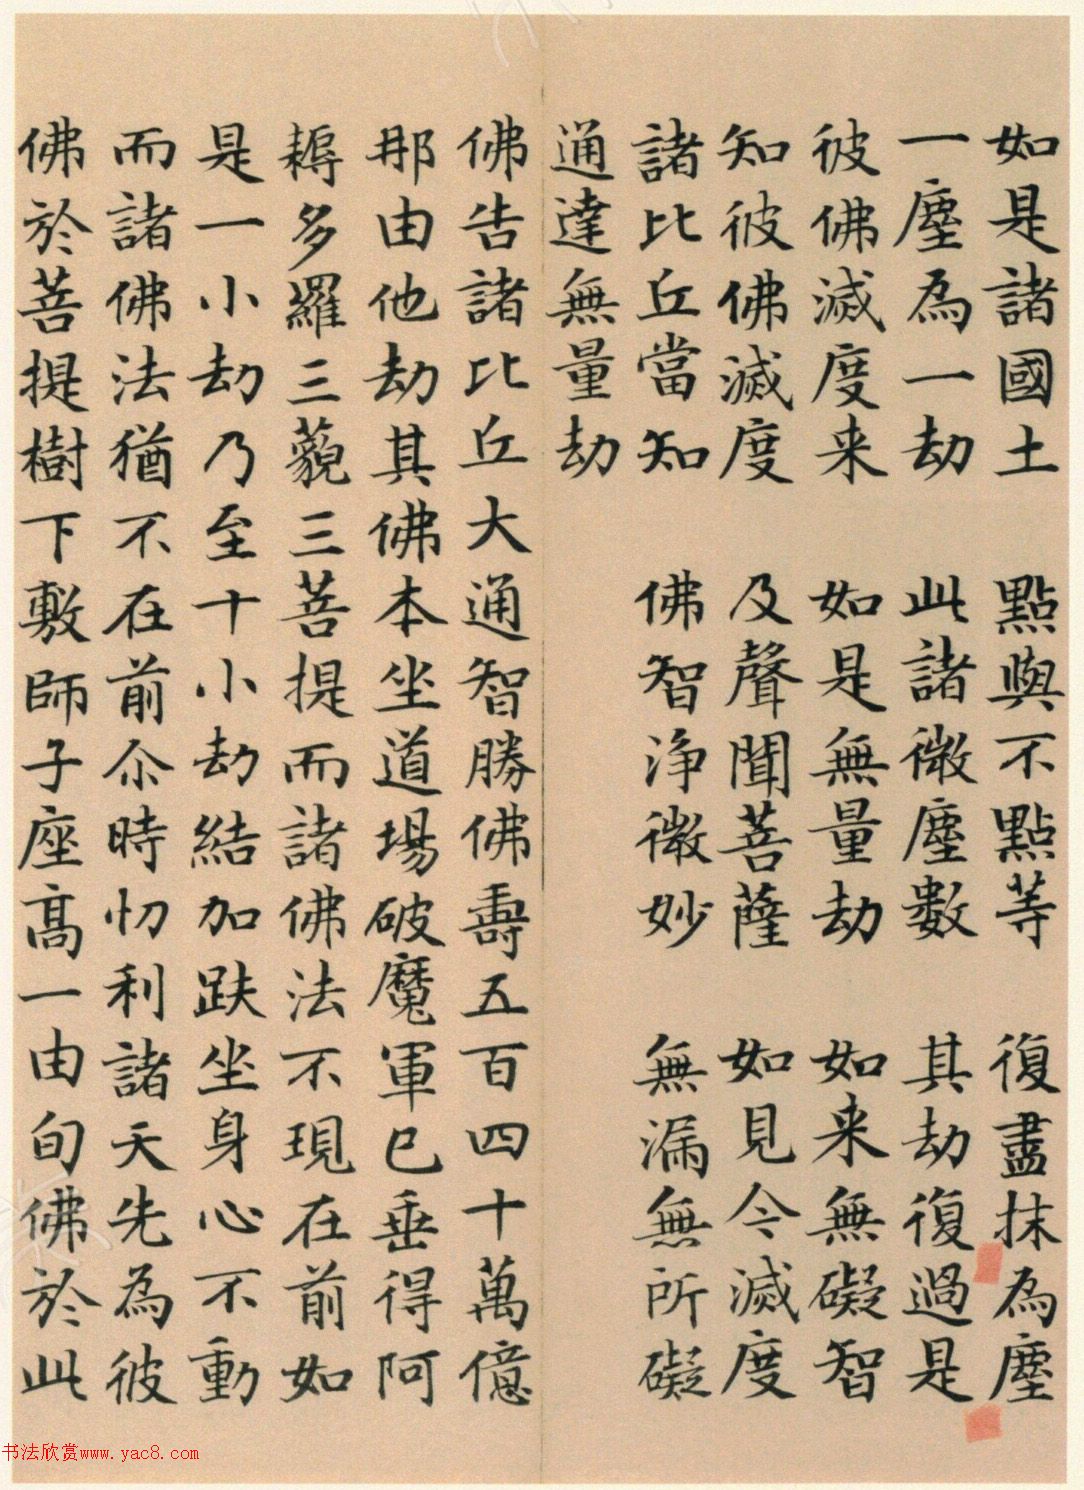 如是諸國土 點與不點等 復盡抹為塵
一塵為一劫 此諸微塵數 其劫復過是
彼佛滅度来 如是無量劫 如来無礙智
知彼佛滅度 及聲聞菩薩 如見今滅度
諸比丘當知 佛智淨微妙 無漏無所礙
通達無量劫
佛告諸比丘大通智勝佛壽五百四十萬億
那由他劫其佛本坐道場破魔軍已垂得阿
耨多羅三藐三菩提而諸佛法不現在前如
是一小劫乃至十小劫結加趺坐身心不動
而諸佛法猶不在前尒時忉利諸天先為彼
佛於菩提樹下敷師子座高一由旬佛於此
书法欣赏www.yac8.com